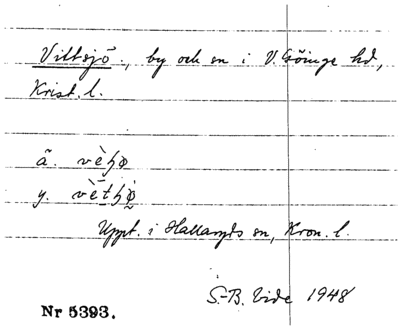 Vittsjö, by och sn i V. Göinge hd,
Krist. l.
ä.
y.
Uppt. i Hallaryds sn, Kron. l.
S.-B. Vide 1948
Nr 5393.